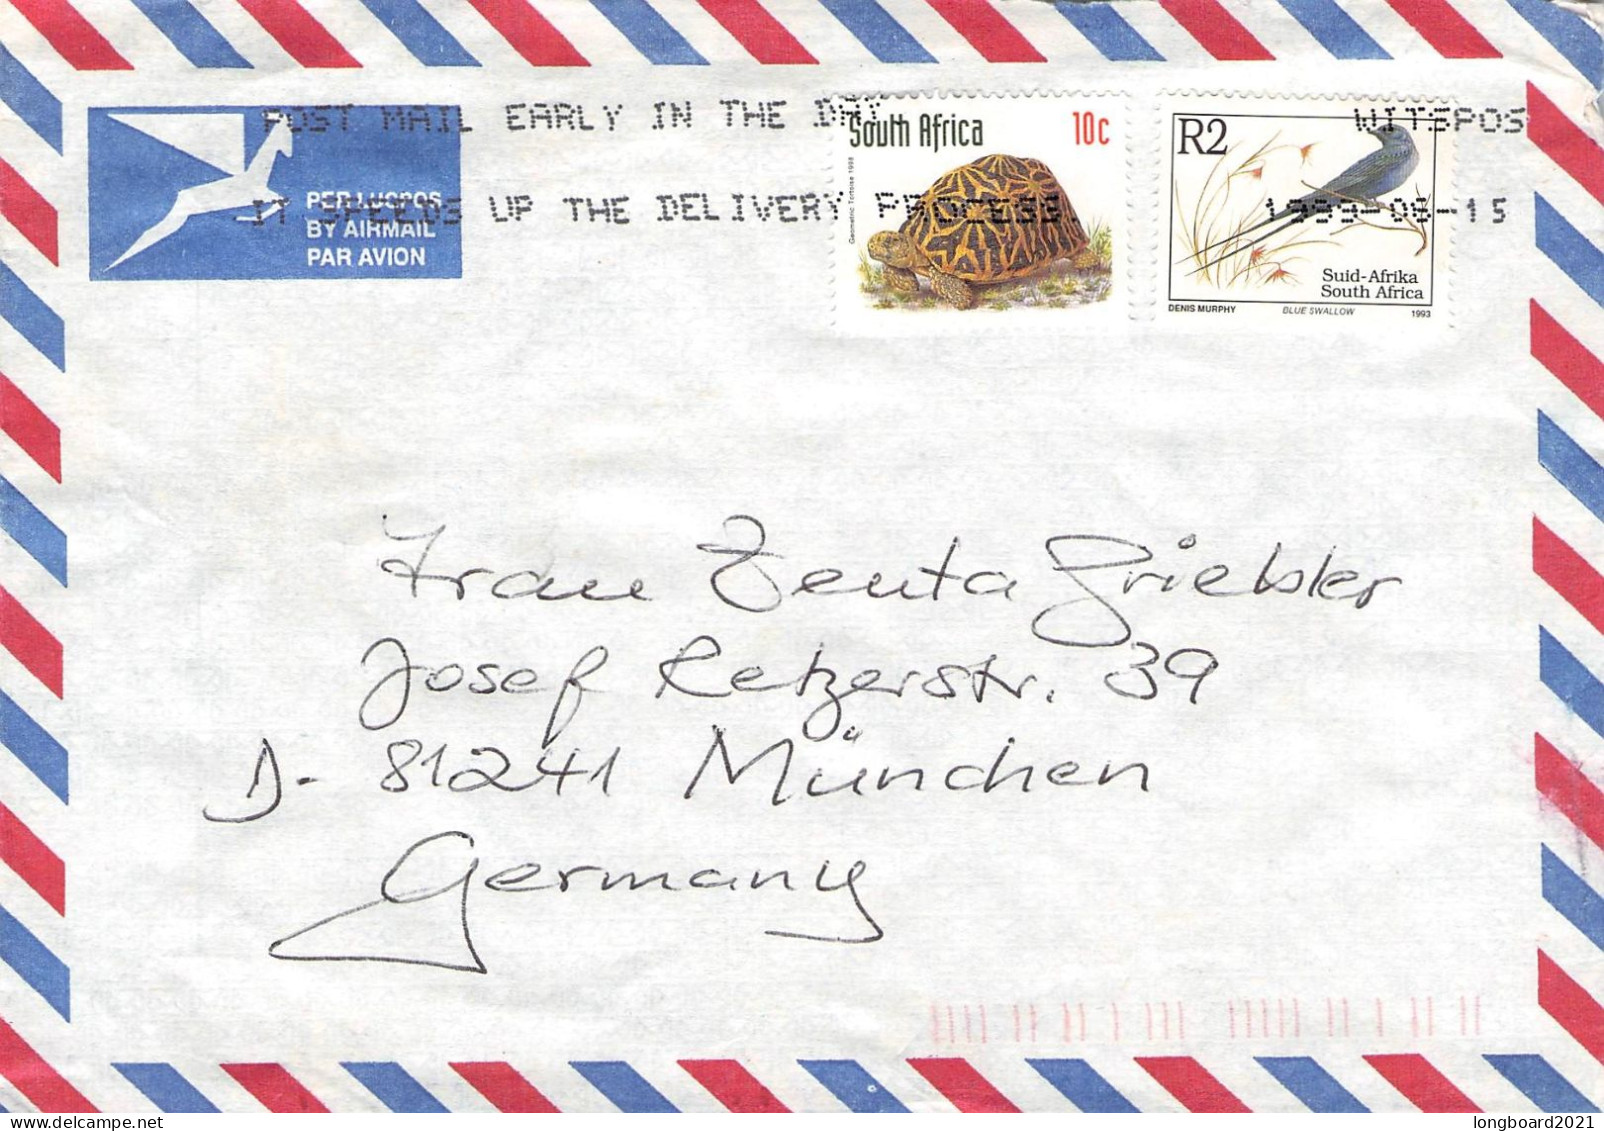 POST MAIL EARLY IN THE DAY
IT SPEEDS UP THE DELIVERY PROCESS
WITSPOS
1999-06-15
PER LUGPOS
BY AIRMAIL
PAR AVION
South Africa 10c
Geometric Tortoise 1998
R2
Suid-Afrika
South Africa
DENIS MURPHY BLUE SWALLOW 1993
Frau Zenta Griebler
Josef Retzerstr. 39
D- 81241 München
Germany
longboard2021